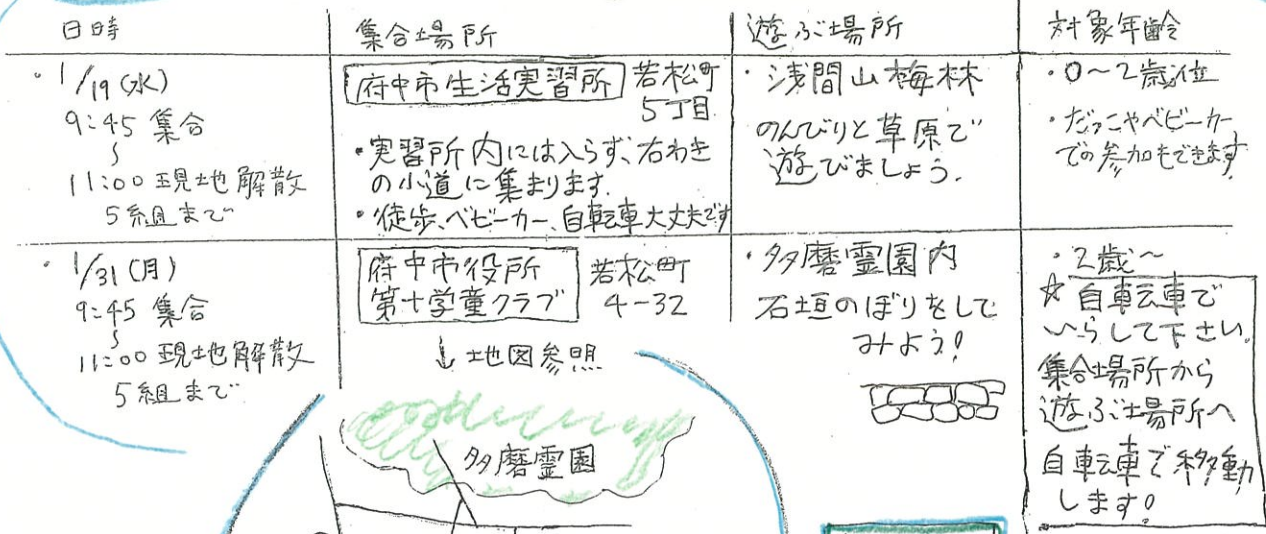 日時
集合場所
遊ぶ場所
対象年齢
・1/19(水)
9:45 集合
〜
11:00 現地解散
5組まで
府中市生活実習所
若松町
5丁目
・実習所内には入らず、右わき
の小道に集まります。
・徒歩、ベビーカー、自転車大丈夫です
・浅間山梅林
のんびりと草原で
遊びましょう。
・0〜2歳位
・だっこやベビーカー
での参加もできます
・1/31(月)
9:45 集合
〜
11:00 現地解散
5組まで
府中市役所
第十学童クラブ
若松町
4-32
↓地図参照
・多磨霊園内
石垣のぼりをして
みよう!
・2歳〜
☆自転車で
いらして下さい。
集合場所から
遊ぶ場所へ
自転車で移動
します!
多磨霊園